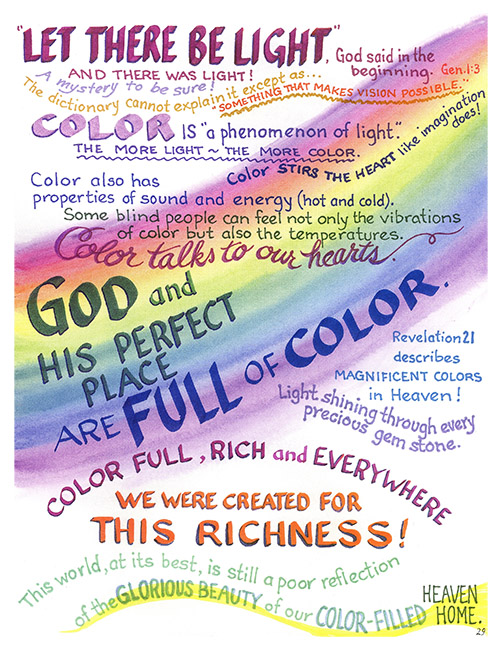 "LET THERE BE LIGHT", God said in the
beginning. Gen. 1:3
AND THERE WAS LIGHT!
A mystery to be sure!
The dictionary cannot explain it except as...
"SOMETHING THAT MAKES VISION POSSIBLE..."
COLOR IS "a phenomenon of light".
THE MORE LIGHT ~ THE MORE COLOR.
Color STIRS THE HEART like imagination
does!
Color also has
properties of sound and energy (hot and cold).
Some blind people can feel not only the vibrations
of color but also the temperatures.
Color talks to our hearts.
GOD and
HIS PERFECT
PLACE
ARE FULL OF COLOR.
Revelation 21
describes
MAGNIFICENT COLORS
in Heaven!
Light shining through every
precious gem stone.
COLOR FULL, RICH and EVERYWHERE
WE WERE CREATED FOR
THIS RICHNESS!
This world, at its best, is still a poor reflection
of the GLORIOUS BEAUTY of our COLOR-FILLED
HEAVEN
HOME.
29